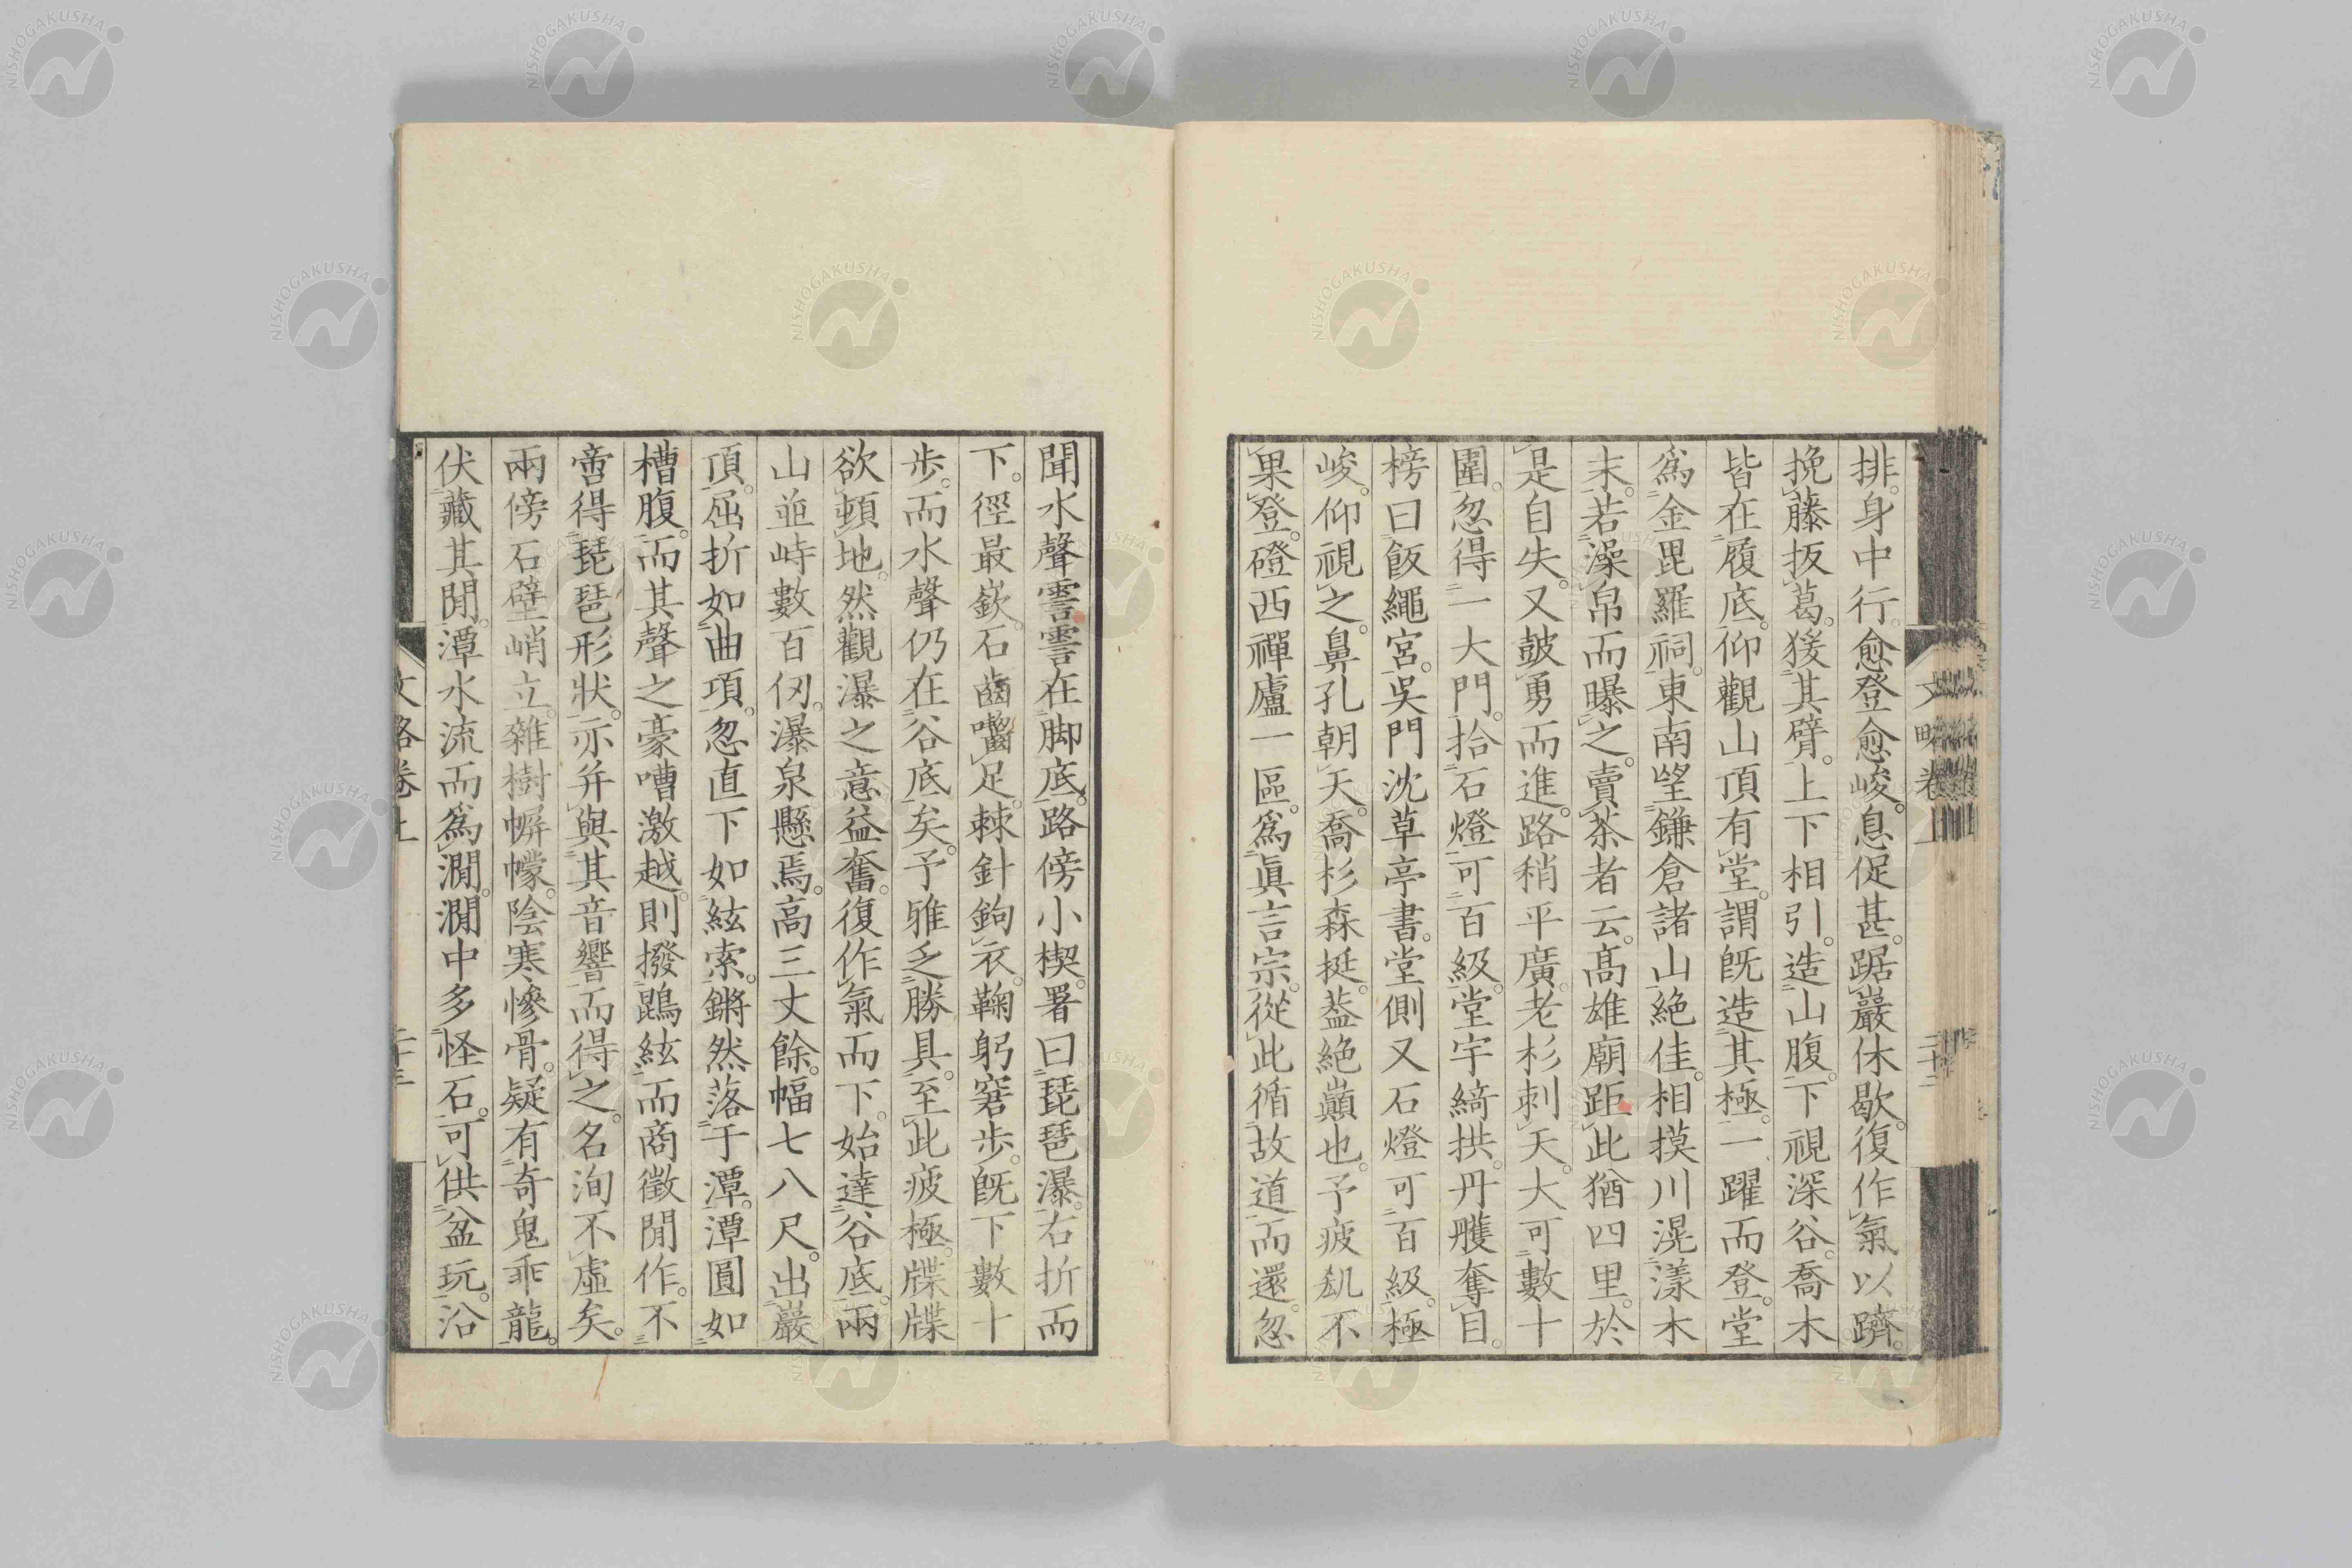 排。身中行。愈登愈峻。息促甚。踞巖休歇。復作氣以躋。
挽藤扳葛。猨其臂。上下相引。造山腹。下視深谷。喬木
皆在履底。仰觀山頂有堂。謂既造其極。一躍而登。堂
爲金毘羅祠。東南望鎌倉諸山絶佳。相摸川滉漾木
末。若澡帛而曝之。賣茶者云。高雄廟距此猶四里。於
是自失。又皷勇而進。路稍平廣。老杉刺天。大可數十
圍。忽得一大門。拾石燈可百級。堂宇綺拱。丹雘奪目。
榜曰飯繩宮。吳門沈草亭書。堂側又石燈可百級。極
峻。仰視之。鼻孔朝天。喬杉森挺。葢絶巓也。予疲劔不
果登。磴西禪廬一區。爲眞言宗。從此循故道而還。忽
文略卷上
二十二
聞水聲霅霅在脚底。路傍小楔。署曰琵琶瀑。右折而
下。徑最嶔。石齒嚙足。棘針鉤衣。鞠躬窘步。既下數十
步。而水聲仍在谷底矣。予雅乏勝具。至此疲極。牒牒
欲頓地。然觀瀑之意益奮。復作氣而下。始達谷底。兩
山並峙數百仞。瀑泉懸焉。高三丈餘。幅七八尺。出巖
頂。屈折如曲項。忽直下如絃索。鏘然落于潭。潭圓如
槽腹。而其聲之豪嘈激越。則撥鵾絃而商徵閒作。不
啻得琵琶形狀。亦并與其音響而得之。名洵不虛矣。
兩傍石壁峭立。雜樹㡡幪。陰寒慘骨。疑有奇鬼乖龍。
伏藏其閒。潭水流而爲澗。澗中多怪石。可供盆玩。沿
文略卷上
二十三